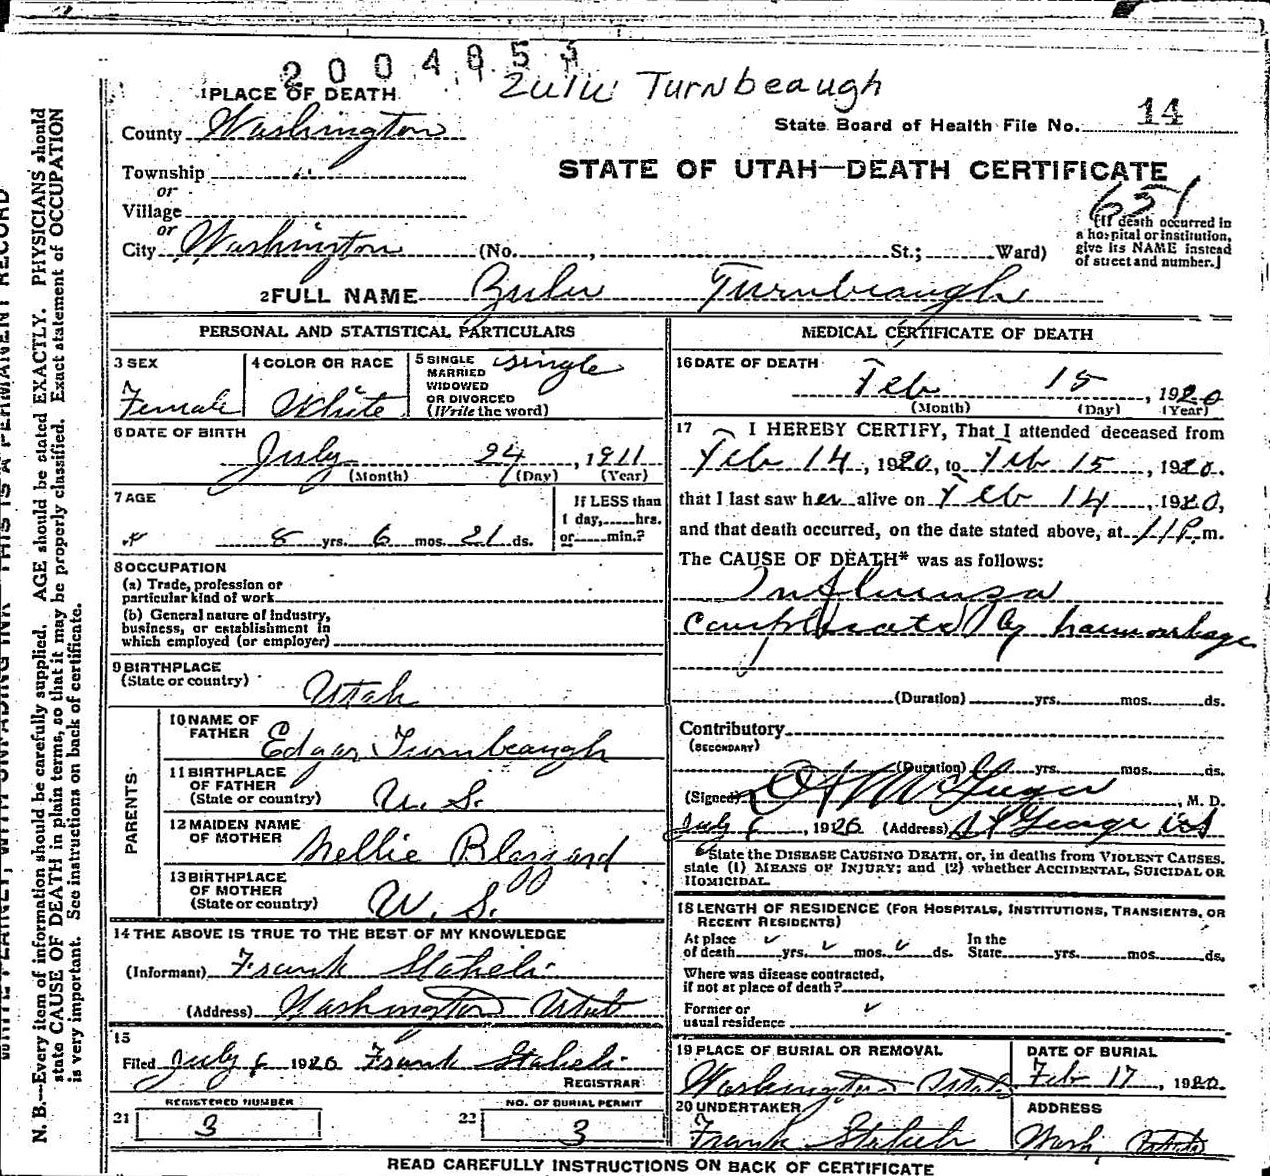 2004853
Zulu Turnbeaugh
1 PLACE OF DEATH
14
State Board of Health File No.
County Washington
STATE OF UTAH—DEATH CERTIFICATE
Township "
or
651
Village
or
[If death occurred in a hospital or institution, give its NAME instead of street and number.]
City Washington (No. , St.; Ward)
2 FULL NAME Zulu Turnbeaugh
PERSONAL AND STATISTICAL PARTICULARS
3 SEX
Female
4 COLOR OR RACE
White
5 SINGLE
MARRIED
WIDOWED
OR DIVORCED
(Write the word)
Single
6 DATE OF BIRTH
July 24, 1911
(Month) (Day) (Year)
7 AGE
8 yrs. 6 mos. 21 ds.
If LESS than
1 day, hrs.
or min.?
8 OCCUPATION
(a) Trade, profession or
particular kind of work
(b) General nature of industry,
business, or establishment in
which employed (or employer)
9 BIRTHPLACE
(State or country)
Utah
PARENTS
10 NAME OF
FATHER
Edgar Turnbeaugh
11 BIRTHPLACE
OF FATHER
(State or country)
U. S.
12 MAIDEN NAME
OF MOTHER
Nellie Blazzard
13 BIRTHPLACE
OF MOTHER
(State or country)
U. S.
14 THE ABOVE IS TRUE TO THE BEST OF MY KNOWLEDGE
(Informant) Frank Staheli
(Address) Washington Utah
15
Filed July 6 1920 Frank Staheli
REGISTRAR
REGISTERED NUMBER
21 3
NO. OF BURIAL PERMIT
22 3
MEDICAL CERTIFICATE OF DEATH
16 DATE OF DEATH
Feb 15, 1920
(Month) (Day) (Year)
17 I HEREBY CERTIFY, That I attended deceased from
Feb 14, 1920, to Feb 15, 1920.
that I last saw her alive on Feb 14, 1920,
and that death occurred, on the date stated above, at 11 P. m.
The CAUSE OF DEATH* was as follows:
Influenza
Complicated by haemorrhage
(Duration) yrs. mos. ds.
Contributory
(SECONDARY)
(Duration) yrs. mos. ds.
(Signed) , M. D.
July 6, 1920 (Address) St George Ut
*State the DISEASE CAUSING DEATH, or, in deaths from VIOLENT CAUSES,
state (1) MEANS OF INJURY; and (2) whether ACCIDENTAL, SUICIDAL OR
HOMICIDAL.
18 LENGTH OF RESIDENCE (FOR HOSPITALS, INSTITUTIONS, TRANSIENTS, OR
RECENT RESIDENTS)
At place
of death yrs. mos. ds.
In the
State yrs. mos. ds.
Where was disease contracted,
if not at place of death?
Former or
usual residence
19 PLACE OF BURIAL OR REMOVAL
Washington Utah
DATE OF BURIAL
Feb 17, 1920.
20 UNDERTAKER
Frank Staheli
ADDRESS
Wash Utah
READ CAREFULLY INSTRUCTIONS ON BACK OF CERTIFICATE
N. B.—Every item of information should be carefully supplied. AGE should be stated EXACTLY. PHYSICIANS should
state CAUSE OF DEATH in plain terms, so that it may be properly classified. Exact statement of OCCUPATION
is very important. See instructions on back of certificate.